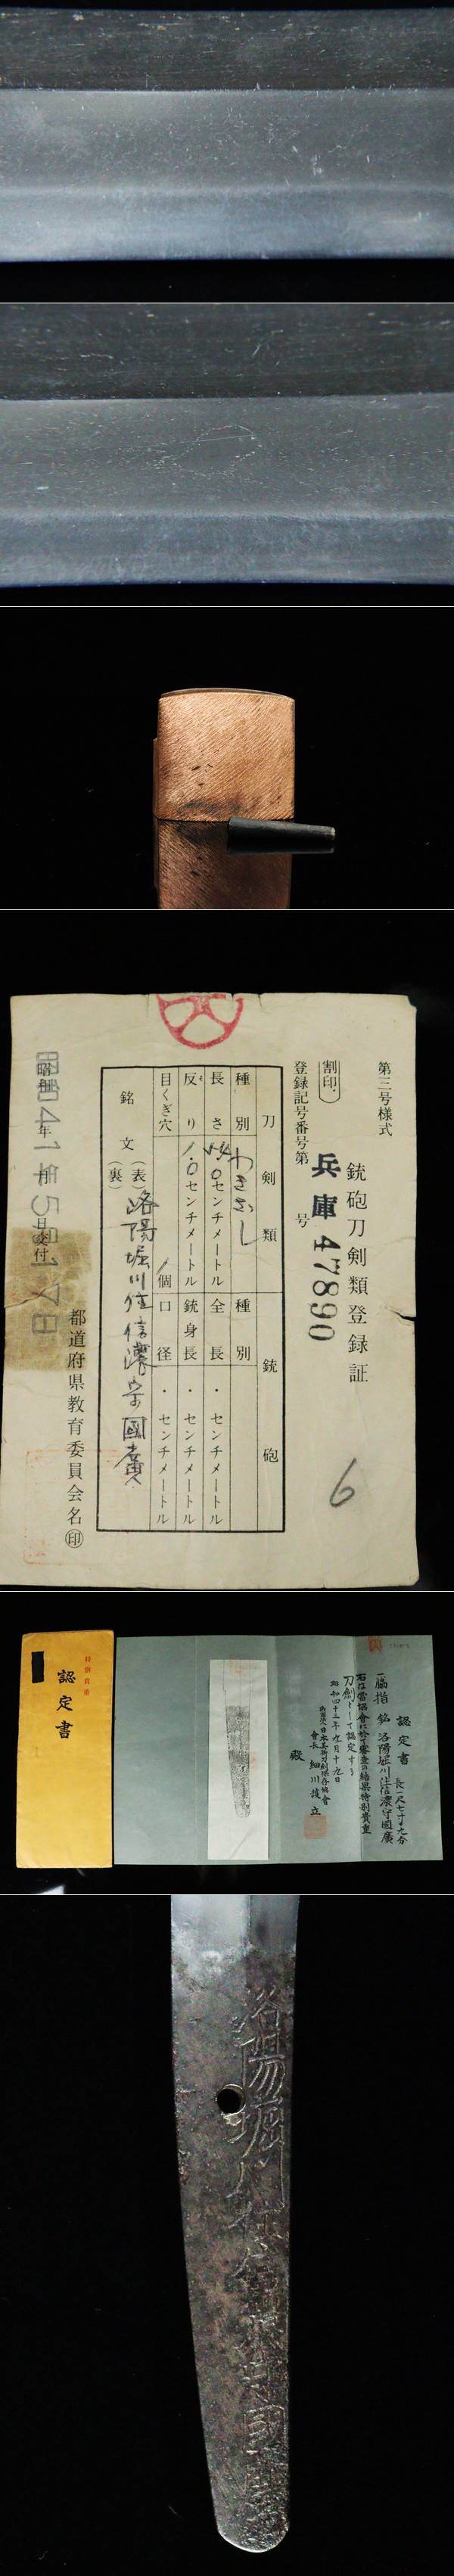 第三号様式
銃砲刀剣類登録証
割印
兵庫 47890
登録記号番号第 号
6
刀剣類
銃砲
種別 わきざし
長さ センチメートル
反り 1.0センチメートル
目くぎ穴 1個
種別
全長 ・ センチメートル
銃身長 ・ センチメートル
口径 ・ センチメートル
銘文
(表) 洛陽堀川住信濃守國廣
(裏)
昭和41年5月17日
年 月 日交付
都道府県教育委員会名 印
認定書
一脇指 銘 洛陽堀川住信濃守國廣
長一尺七寸九分
右は當協會に於て審査の結果特別貴重
刀劍として認定する
昭和四十三年九月十九日
財団法人日本美術刀剣保存協會
會長 細川護立
殿
特別貴重
認定書
洛陽堀川住信濃守國廣